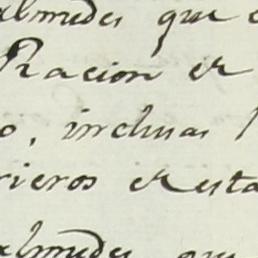 almudes que
Racion er
o, inclusas
rieros eresta
almudes que